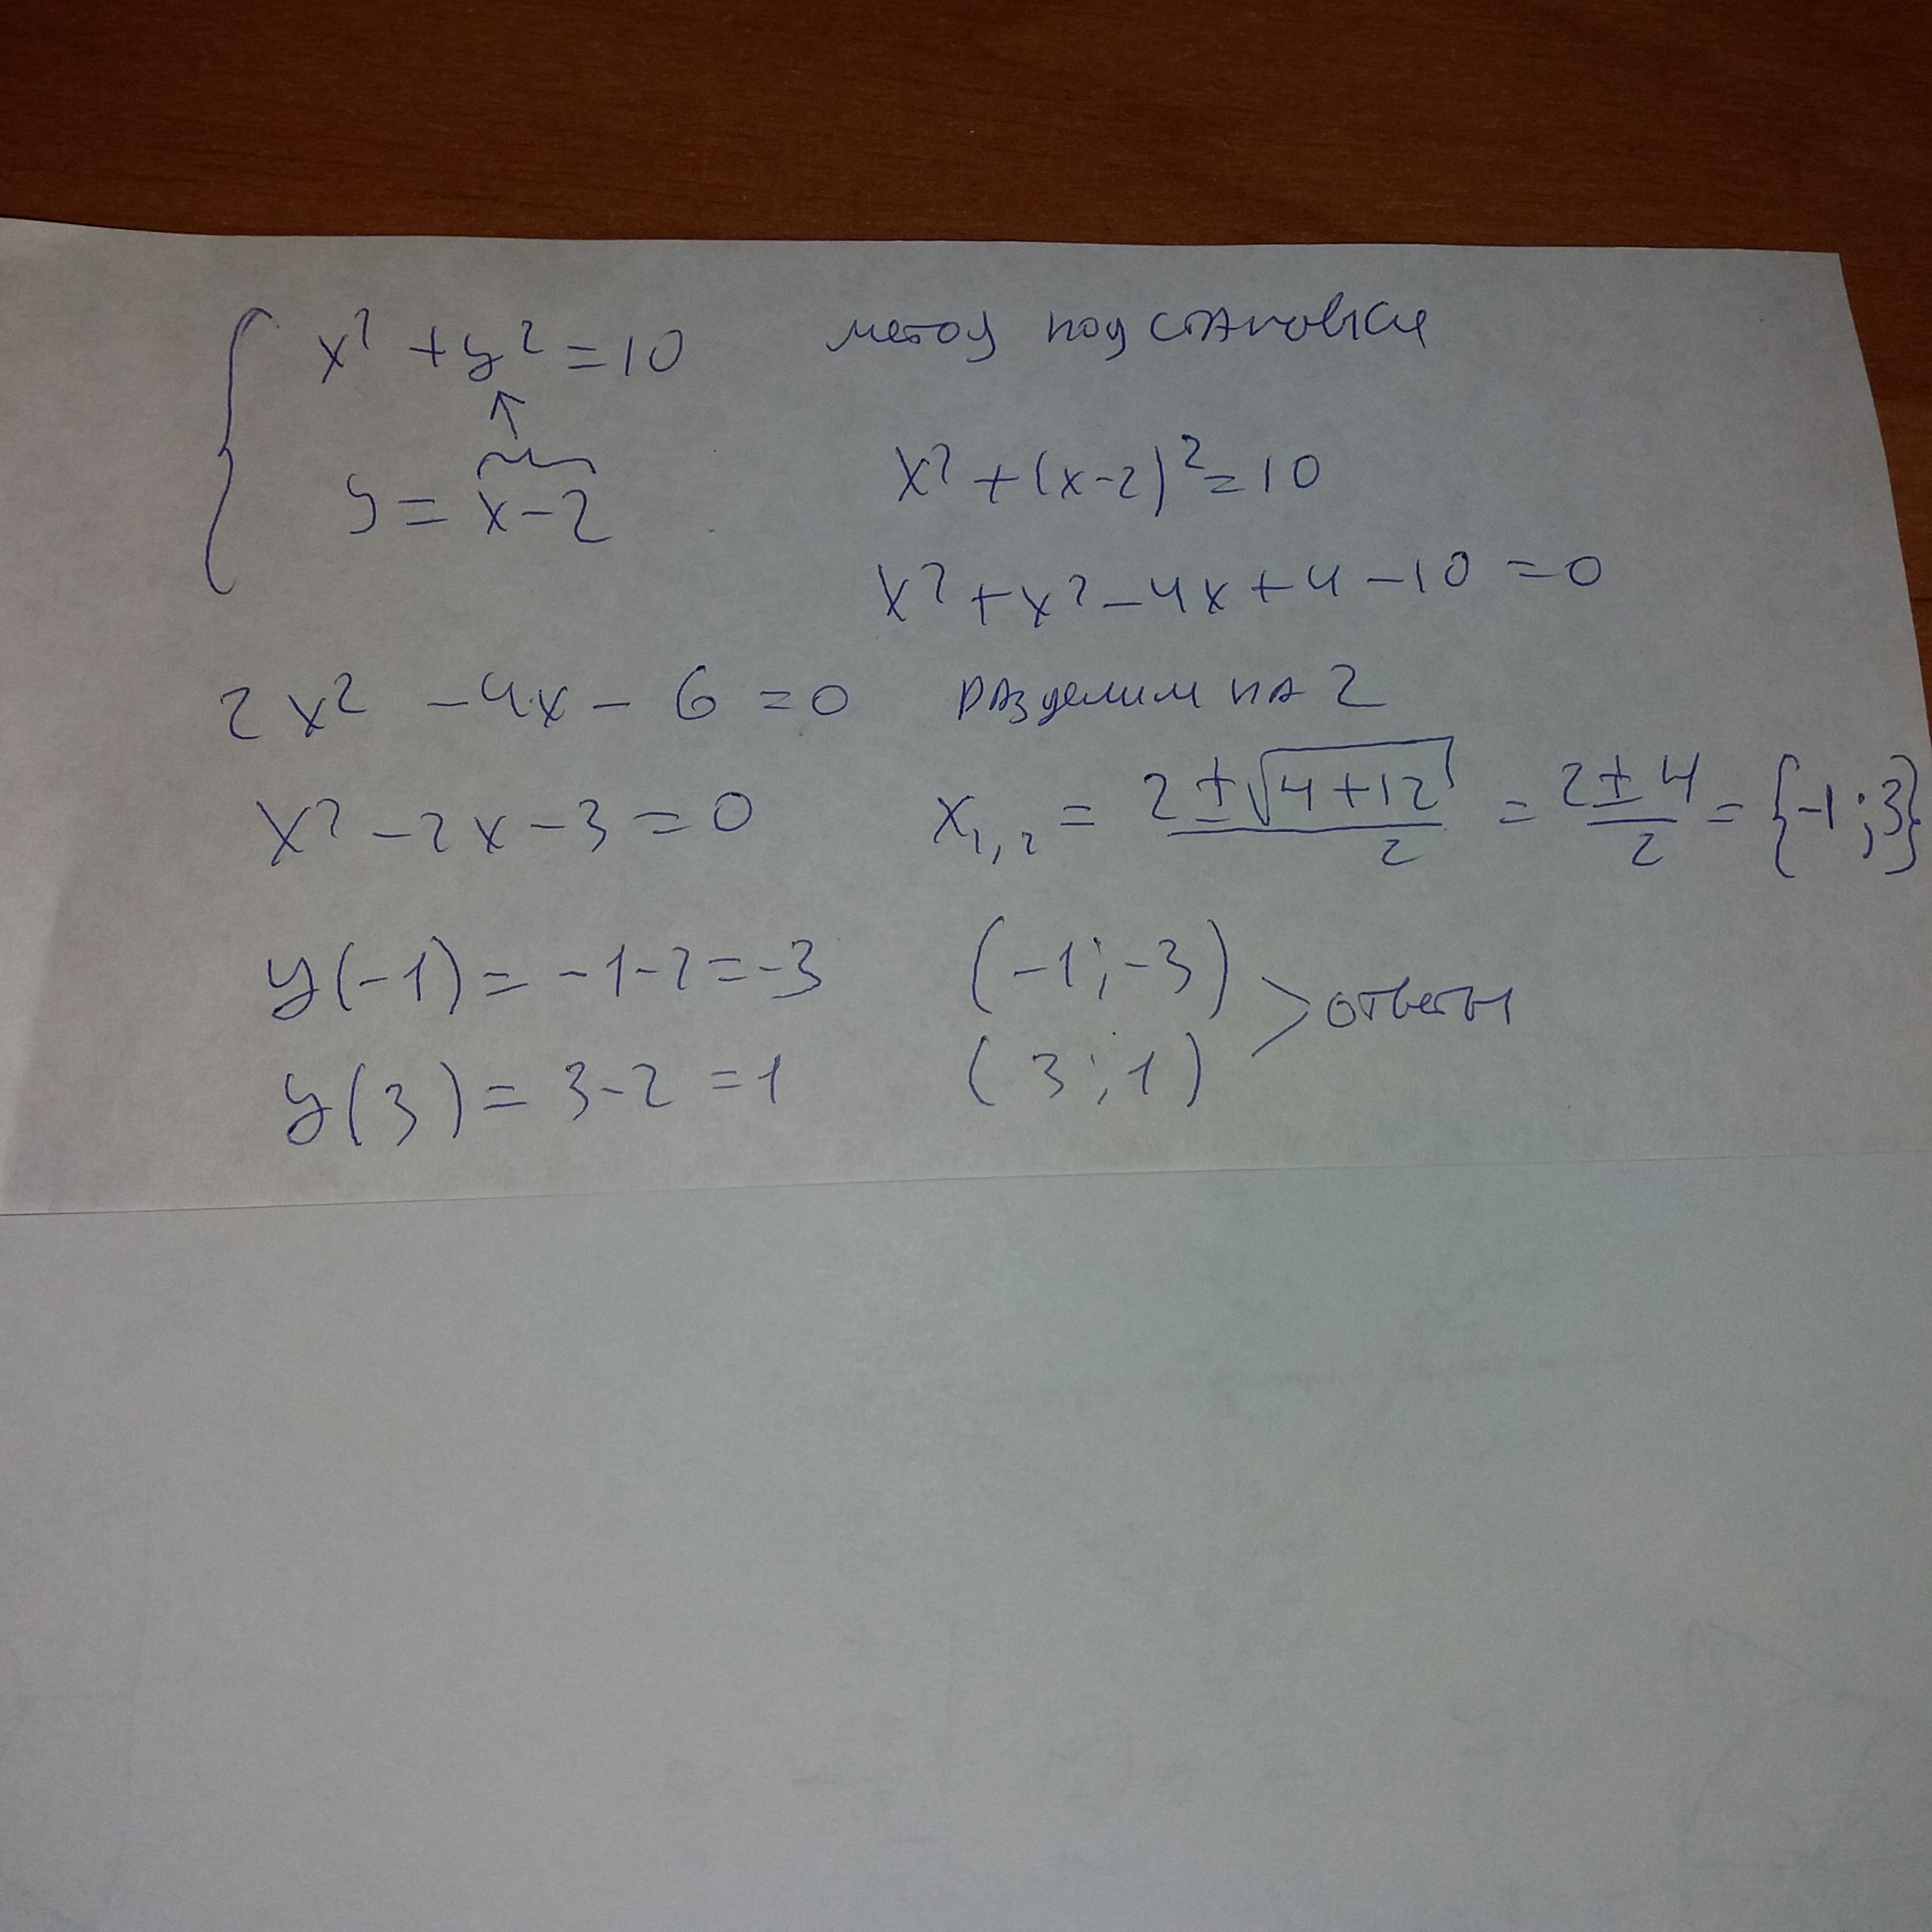 x² + y² = 10 метод подстановки
y = x - 2
x² + (x-2)² = 10
x² + x² - 4x + 4 - 10 = 0
2x² - 4x - 6 = 0 разделим на 2
x² - 2x - 3 = 0 x₁,₂ = (2 ± √(4+12))/2 = (2 ± 4)/2 = {-1; 3}
y(-1) = -1-2 = -3 (-1; -3)
> ответы
y(3) = 3-2 = 1 (3; 1)